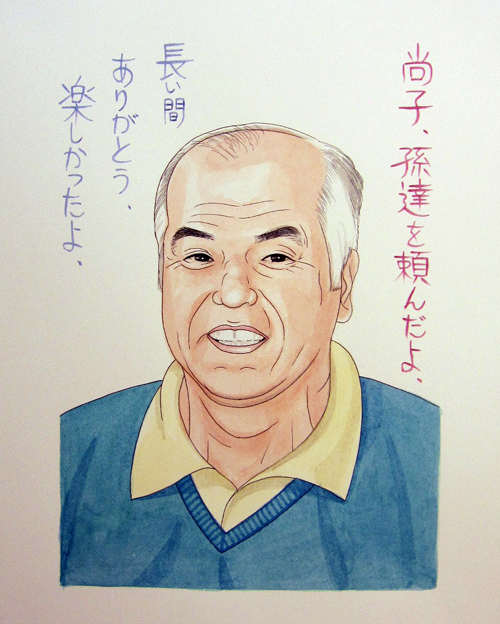 尚子、孫達を頼んだよ、
長い間
ありがとう、
楽しかったよ、